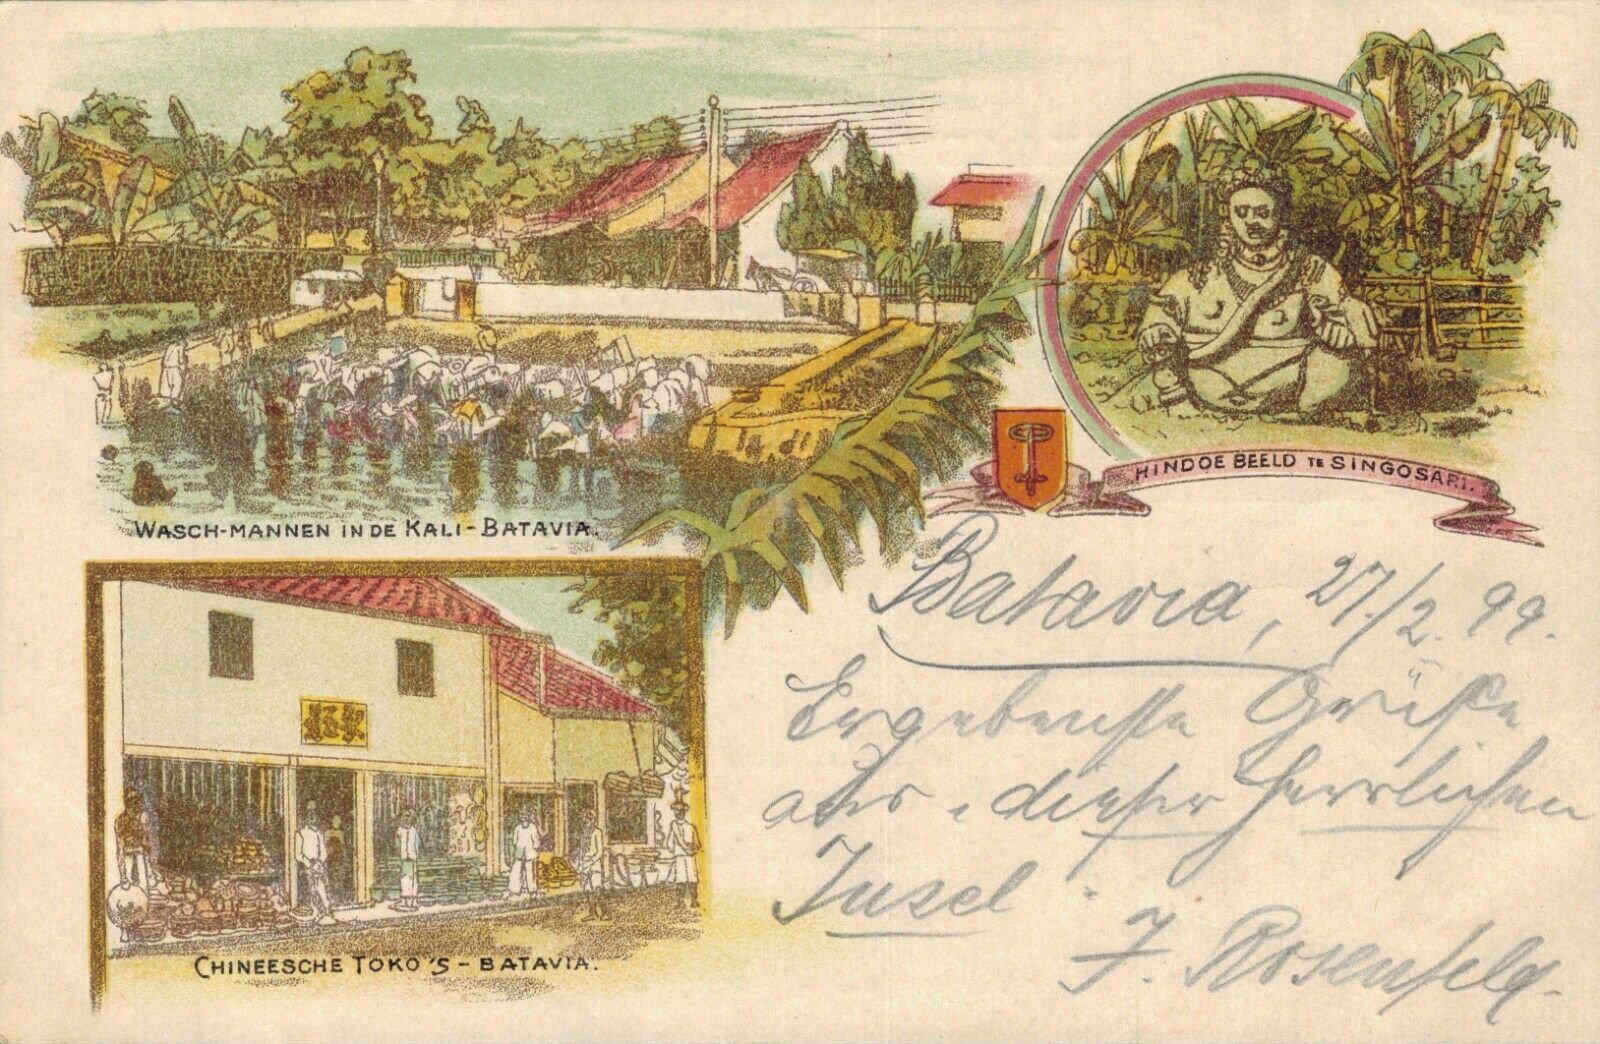 WASCH-MANNEN IN DE KALI - BATAVIA.
HINDOE BEELD TE SINGOSARI.
CHINEESCHE TOKO'S - BATAVIA.
Batavia, 27/2. 99.
Ergebenste Grüße
aus dieser herrlichen
Insel.
J. Rosenfeld.